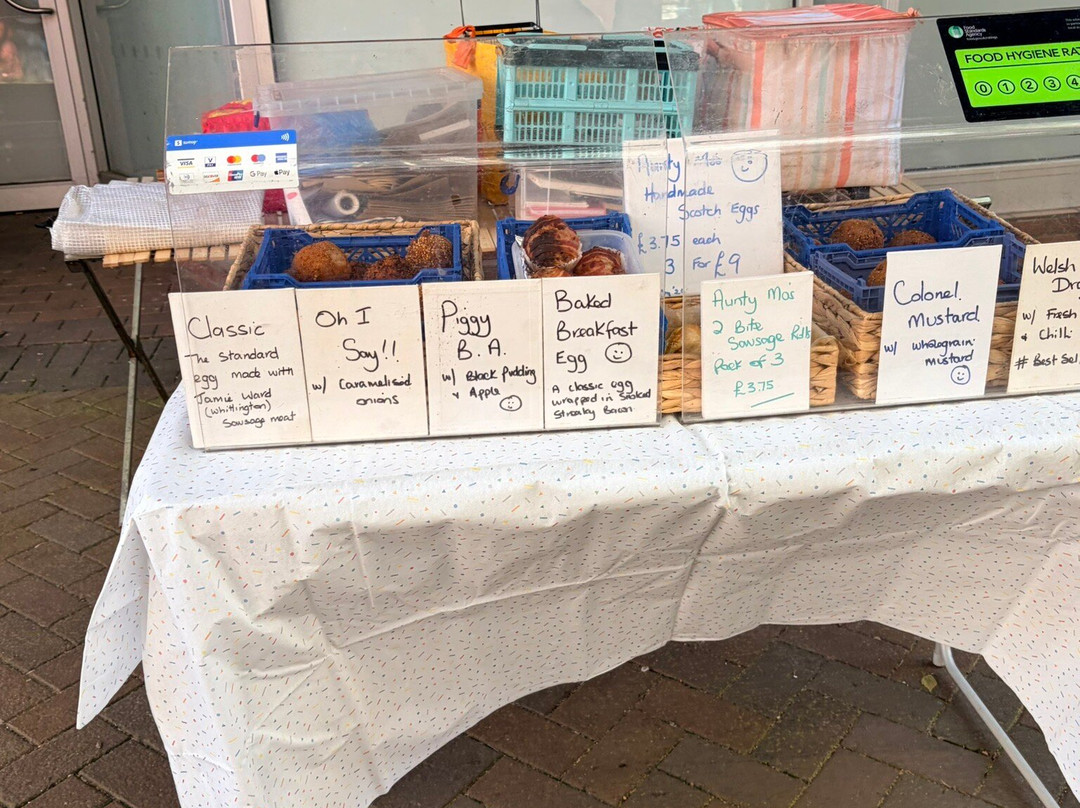 Food
Standards
Agency
FOOD HYGIENE RA
0 1 2 3 4
VISA
G Pay
Pay
Handmade
Scotch Eggs
£3.75 each
3 For £9
Classic
The Standard
egg made with
Jamie Ward
(Whittington)
Sausage meat
Oh I
Say!!
w/ Caramelised
onions
Piggy
B.A.
w/ Black Pudding
& Apple
Baked
Breakfast
Egg
A classic egg
wrapped in Smoked
Streaky Bacon
Aunty Mos
2 Bite
Sausage Rolls
Pack of 3
£3.75
Colonel
Mustard
w/ wholegrain
mustard
Welsh
Dra
w/ Fresh
& Chilli
# Best Sel